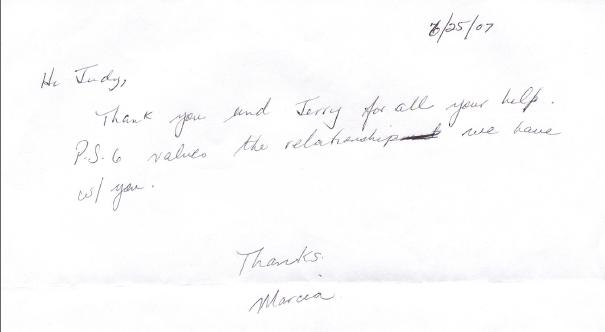 6/25/07
Hi Judy,
Thank you and Jerry for all your help.
P.S. 6 values the relationship we have
w/ you.
Thanks.
Marcia